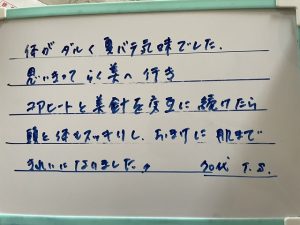 体がダルく夏バテ気味でした。
思いきって らく美へ 行き
コアヒートと美針を交互に続けたら
頭と体もスッキリし、おまけに肌まで
きれいになりました。
30代 T.S.